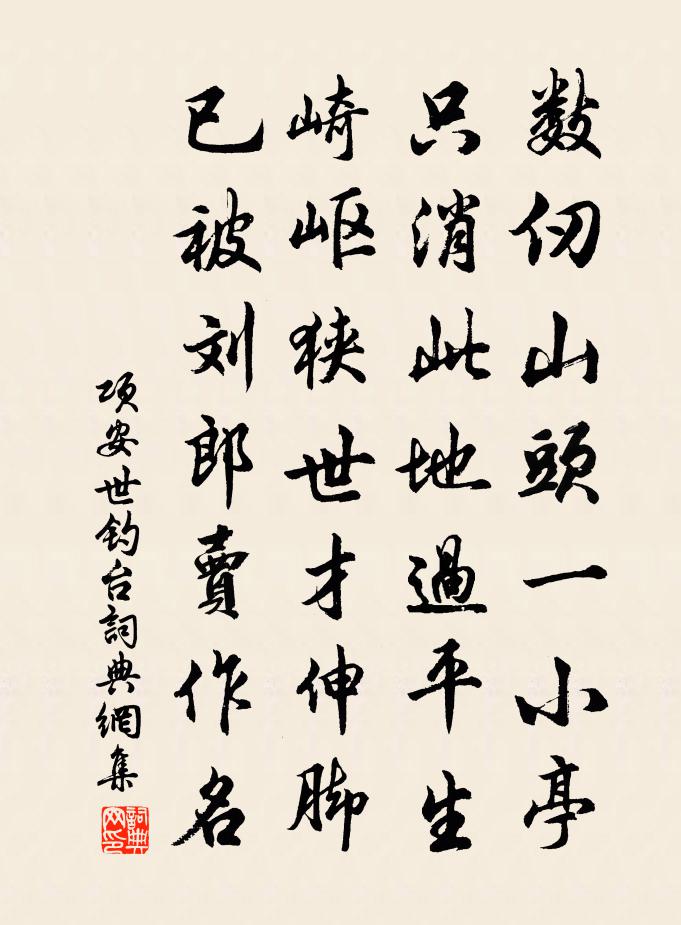 数仞山頭一小亭
只消此地過平生
崎岖狭世才伸脚
已被刘郎賣作名
项安世钓台詞典網集
詞典
网印